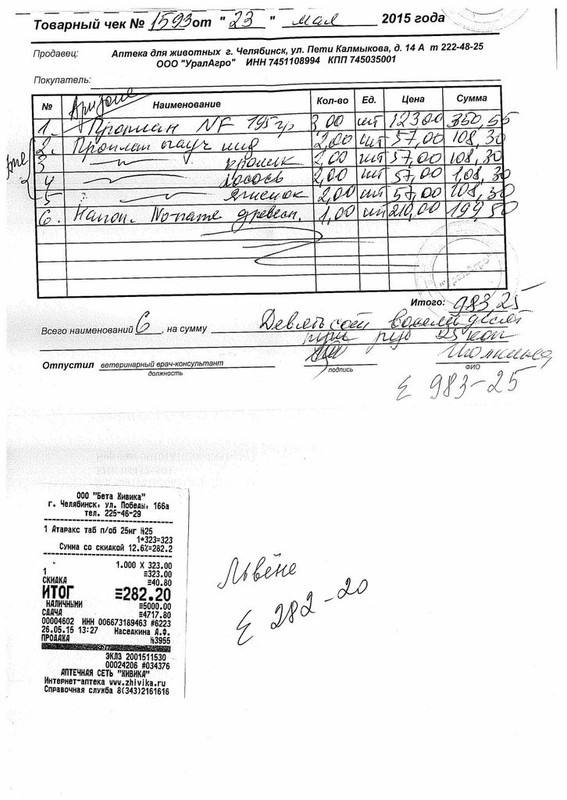 Товарный чек № 1593 от " 23 " мая 2015 года
Продавец: Аптека для животных г. Челябинск, ул. Пети Калмыкова, д. 14 А т 222-48-25
ООО "УралАгро" ИНН 7451108994 КПП 745035001
Покупатель:
№ Наименование Кол-во Ед. Цена Сумма
1. Проплан NF 195гр 3,00 шт 123,00 350,55
2. Проплан пауч инд 2,00 шт 57,00 108,30
3 кролик 2,00 шт 57,00 108,30
4 лосось 2,00 шт 57,00 108,30
5 ягненок 2,00 шт 57,00 108,30
6. Напол. древесн. 1,00 шт 210,00 199,50
Итого: 983,25
Всего наименований 6 , на сумму Девятьсот восемьдесят
три руб 25 коп
Отпустил ветеринарный врач-консультант
должность подпись ФИО
Σ 983-25
ООО "Бета Живика"
г. Челябинск, ул. Победы, 166а
тел. 225-46-29
1 Атаракс таб п/об 25мг N25
1*323=323
Сумма со скидкой 12.6%=282.2
1.000 X 323.00
1 ≡323.00
СКИДКА ≡40.80
ИТОГ ≡282.20
НАЛИЧНЫМИ ≡5000.00
СДАЧА ≡4717.80
00004602 ИНН 006673189463 #6223
26.05.15 13:27 Наседкина А.Ф.
ПРОДАЖА №3955
ЭКЛЗ 2001511530
00024206 #034376
АПТЕЧНАЯ СЕТЬ "ЖИВИКА"
Интернет-аптека www.zhivika.ru
Справочная служба 8(343)2161616
Львёне
Σ 282-20